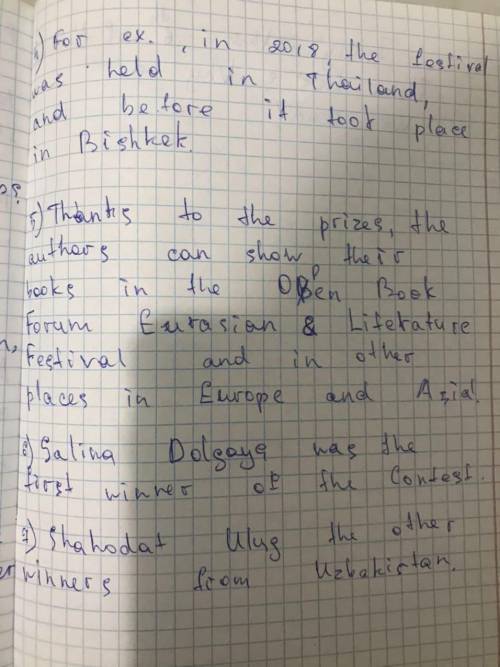 4) For ex., in 2018, the festival
was held in Thailand,
and before it took place
in Bishkek.
5) Thanks to the prizes, the
authors can show their
books in the Open Book
Forum Eurasian & Literature
Festival and in other
places in Europe and Azia.
6) Galina Dolgaya was the
first winner of the Contest.
7) Shahodat Ulug the other
winners from Uzbakistan.